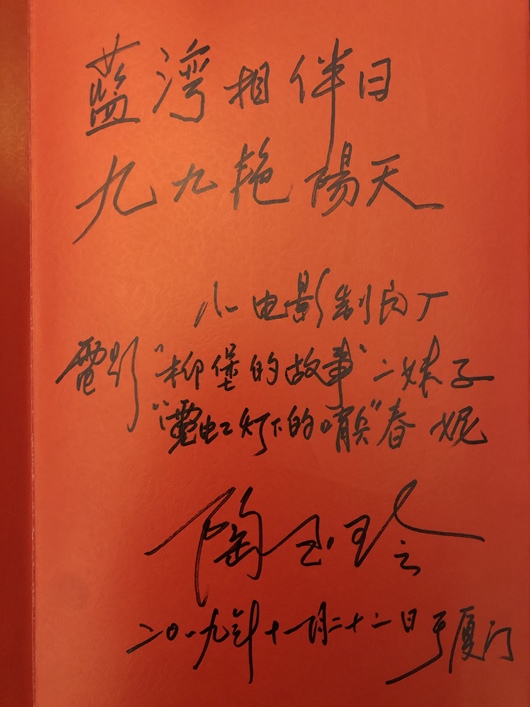 藍湾相伴日
九九艳陽天
八一电影制片厂
電影"柳堡的故事"二妹子
"霓虹灯下的哨兵"春妮
陶玉玲
二〇一九年十一月二十二日于厦门